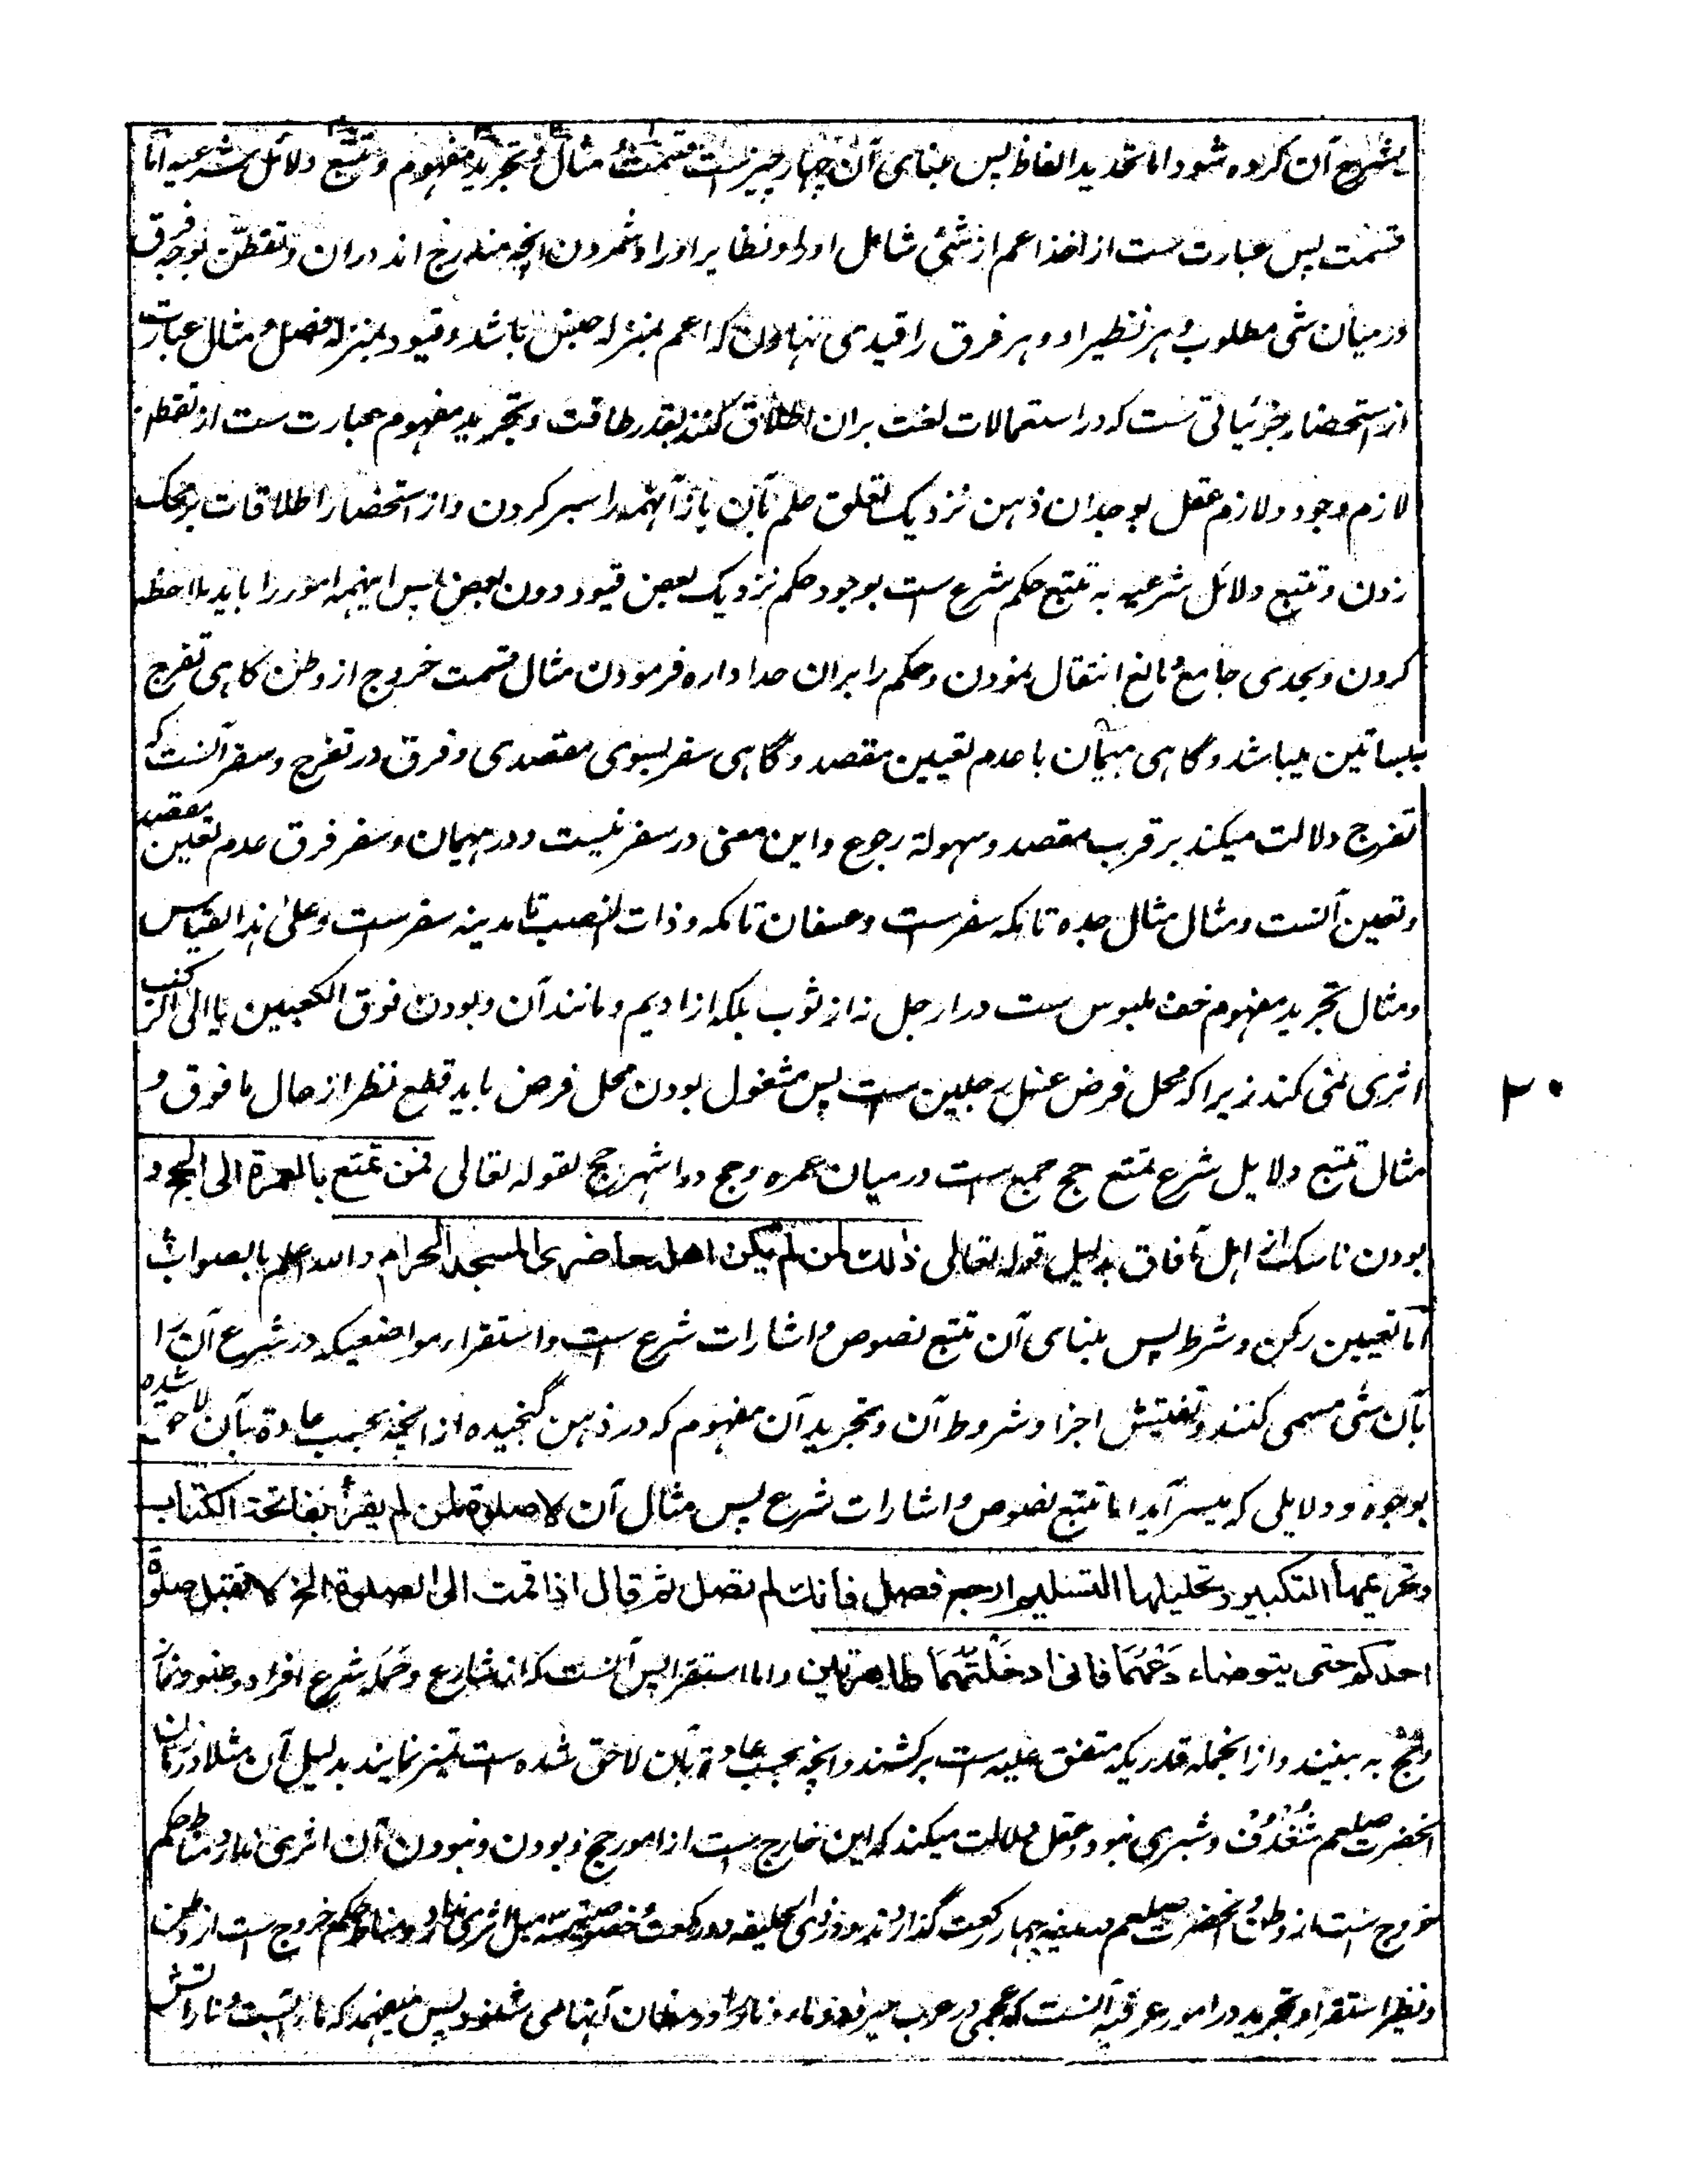 بشرع آن کرده شود اما تحدید الفاظ پس مبنای آن چهار چیز ست قسمت و مثال و تجرید مفهوم و تتبع دلائل شرعیه اما
قسمت پس عبارت ست از اخذ اعم از شئ شامل او را و نظایر او را و شمردن آنچه مندرج اند دران و تفطن بوجه فرق
درمیان شی مطلوب و هر نظیر او و هر فرق را قیدی نهادن که اعم بمنزله جنس باشد و قیود بمنزله فصل و مثال عبارت
از استحضار جزئیاتی ست که در استعمالات لغت بران اطلاق کنند بقدر طاقت و تجرید مفهوم عبارت ست از تفطن
لازم وجود و لازم عقل بوجدان ذهن نزدیک تعلق علم بآن باز آنهمه را سبر کردن و از استحضار اطلاقات بر محک
زدن و تتبع دلائل شرعیه به تتبع حکم شرع ست بوجود حکم نزدیک بعض قیود دون بعض پس اینهمه امور را باید ملاحظه
کردن و بحدی جامع و مانع انتقال نمودن و حکم را بران حد اداره فرمودن مثال قسمت خروج از وطن کاهی تفرج
ببساتین میباشد و گاهی هیمان با عدم تعیین مقصد و گاهی سفر بسوی مقصدی و فرق در تفرج و سفر آنست که
تفرج دلالت میکند بر قرب مقصد و سهولة رجوع و این معنی در سفر نیست و در هیمان و سفر فرق عدم تعین مقصد
و تعین آنست و مثال مثال جده تا مکه سفرست و عسفان تا مکه و ذات النصب تا مدینه سفرست و علی هذا القیاس
و مثال تجرید مفهوم خف ملبوس ست در ارجل نه از ثوب بلکه از ادیم و مانند آن و بودن فوق الکعبین یا الی الرکب
اثری نمی کند زیرا که محل فرض غسل رجلین ست پس مشغول بودن محل فرض باید قطع نظر از حال ما فوق و
۲۰
مثال تتبع دلایل شرع تمتع حج جمع ست درمیان عمره و حج در اشهر حج لقوله تعالی فمن تمتع بالعمرة الی الحج و
بودن ناسک از اهل آفاق بدلیل قوله تعالی ذالک لمن لم یکن اهله حاضری المسجد الحرام والله اعلم بالصواب
اما تعیین رکن و شرط پس بنای آن تتبع نصوص و اشارات شرع ست و استقراء مواضعیکه در شرع آن را
بآن شی مسمی کنند و تفتیش اجزا و شروط آن و تجرید آن مفهوم که در ذهن گنجیده از آنچه بحسب عادة بآن لاحق شده
بوجوه و دلایلی که میسر آید اما تتبع نصوص و اشارات شرع پس مثال آن لا صلوة لمن لم یقرأ بفاتحة الکتاب
وتحریمها التکبیر وتحلیلها التسلیم ارجع فصل فانک لم تصل ثم قال اذا قمت الی الصلوة الخ لا تقبل صلوة
احدکم حتی یتوضاء دَعْهُمَا فانی ادخَلْتُهُمَا طاهرتین و اما استقرا پس آنست که از شارع و حمله شرع افراد وضو و نماز
و حج به بینند و از انجمله قدریکه متفق علیه ست برکشند و آنچه بحسب عادة بآن لاحق شده ست تمیز نمایند بدلیل آن مثلا در زمان
آنحضرت صلعم شُغْدُف و شبری نبود و عقل دلالت میکند که این خارج ست از امور حج و بودن و نبودن آن اثری ندارد مناط حکم
خروج ست از وطن و آنحضرت صلعم بمدینه چهار رکعت گذاردند و بذی الحلیفه دو رکعت و خصوصیت سه میل اثری ندارد و مناط حکم خروج ست از وطن
و نظیر استقرا و تجرید در امور عرفیه آنست که عجمی در عرب میرود و ماء و نار را در میان آنها می شنود پس میفهمد که ماء آبست و نار آتش